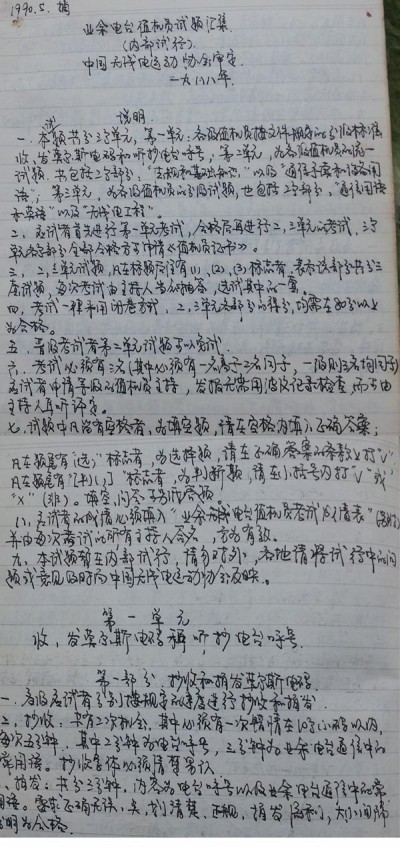 1990.5. 摘
业余电台值机员试题汇集
(内部试行)
中国无线电运动协会审定
一九八八年
说明
一、本题书分三单元,第一单元:各级值机员按文件规定的分级标准
收、发莫尔斯电码和听抄电台呼号,第二单元,为各级值机员的统一
试题,书包括二部分,以及"通信予索和结语用
语";第三单元,为各级值机员的分级试题,也包括二部分,"通信用语
以及"无线电工程"。
二、应试者首先进行第一单元考试,合格后再进行二、三单元的考试,三个
单元各部分全部合格方可申请《值机员证书》。
三、2,三单元试题,凡在标题后注有(1)、(2)、(3)标志者,表示该部分共分三
套试题,每次考试由主持人当众抽签,选试其中的一套。
四、考试一律采用闭卷方式,二、三单元各部分的得分,均需在80分以上
为合格。
五、晋级考试者第二单元试题可以免试
六、考试必须有三名(其中必须有一名高于二名同等,一级则三名均同等)
应试者申请等级的值机员主持,
主持人耳听评定。
七、试题中凡留有空格者,为填空题,请在空格内填入正确答案;
凡在题尾有"选"标志者,为选择题,请在正确答案的条款上打"√"
凡在题尾有"[判( )]"标志者,为判断题,请在小括号内打"√"或
"×"(非)。填空,问答予为听答题。
八、应试者的成绩必须填入"业余无线电台值机员考试成绩表"
并由每次考试的所有主持人签名,方为有效。
九、本试题暂在内部试行,请勿对外,各地请将试行中的问
题或意见及时向中国无线电运动协会反映。
第一单元
收、发莫尔斯电码和听抄电台呼号
第一部分、抄收和拍发莫尔斯电码
一、各级应试者分别按规定的速度进行抄收和拍发
二、抄收:共有二次机会,其中必须有一次错情在10个小码以内,
每次五分钟,其中2分钟为电台呼号,三分钟为业余电台通信中的
常用语。抄收字体必须清楚易认
拍发:共分三分钟,内容为电台呼号以及业余电台通信中的常
用语。要求正确无误,点、划清楚、正规,拍发流利,大小间隔
分明为合格。